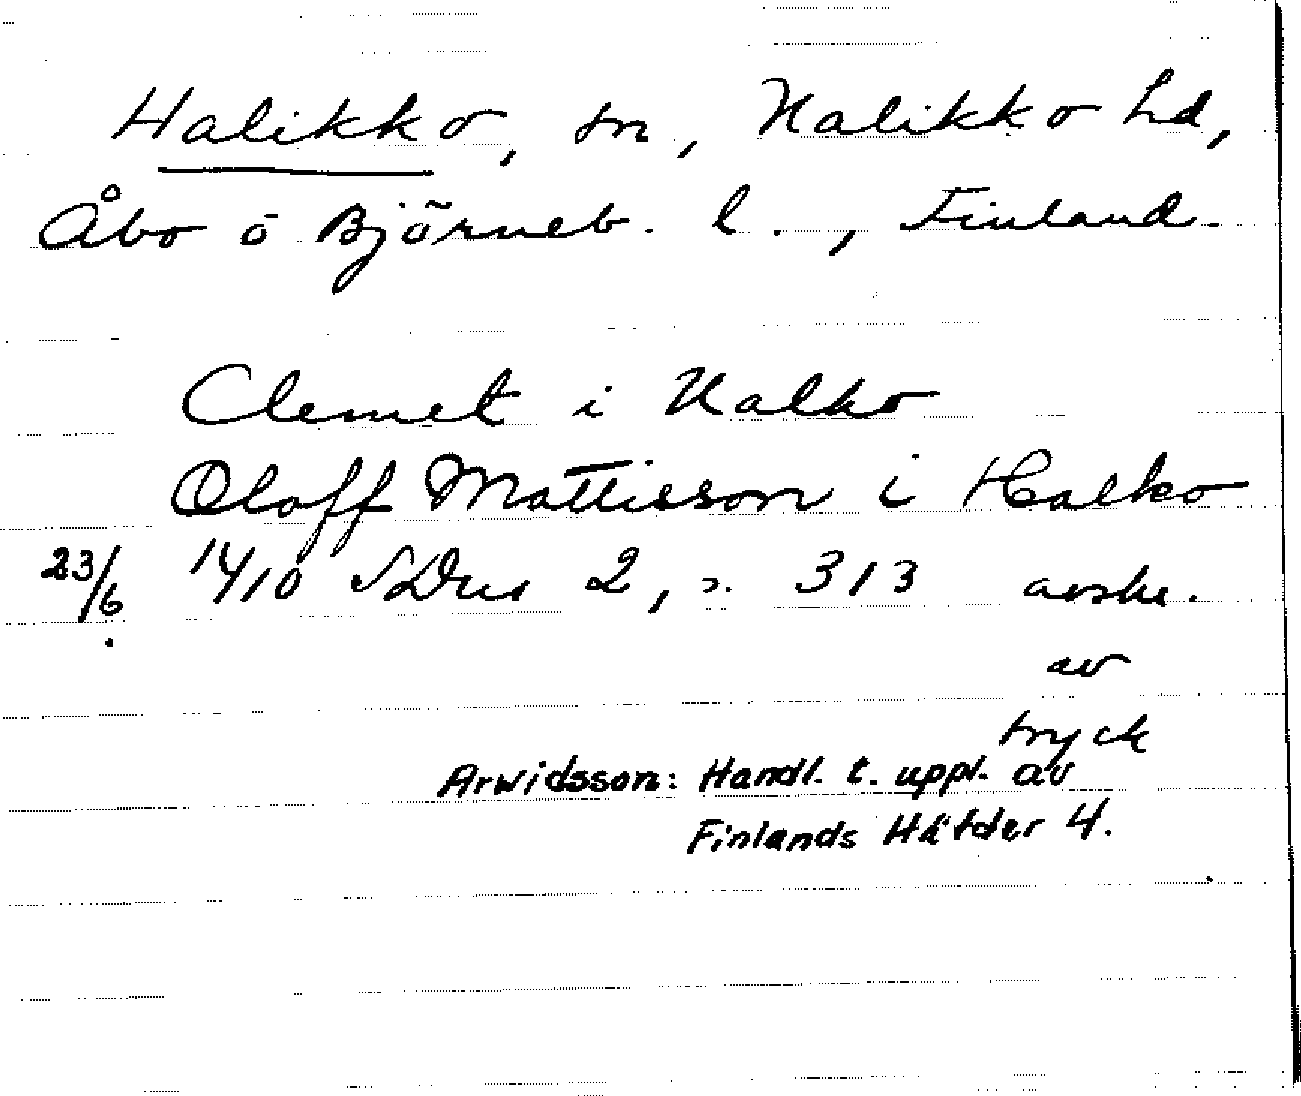 Halikko, sn, Halikko hd,
Åbo o Björneb. l., Finland.
Clemet i Halko
Oloff Mattisson i Halko
23/6 1410 SDns 2, s. 313 avskr.
av
tryck
Arwidsson: Handl. t. uppl. av
Finlands Häfder 4.